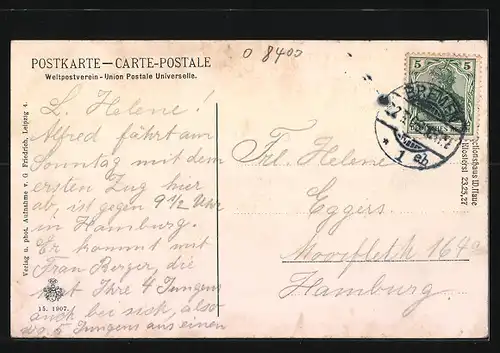 o 8400
POSTKARTE — CARTE-POSTALE
Weltpostverein - Union Postale Universelle.
L. Helene!
Alfred fährt am
Sonntag mit dem
ersten Zug hier
ab, ist gegen 9 1/2 Uhr
in Hamburg.
Er kommt mit
Frau Berger, die
hat Ihre 4 Jungens
auch bei sich, also
5 Jungens aus einen
Frl. Helene
Eggers
Moorfleth 164a
Hamburg
5 5
BREMEN
* 1 eb
Verlag u. phot. Aufnahme v. G. Friedrich, Leipzig 4.
15. 1907.
23.25.27